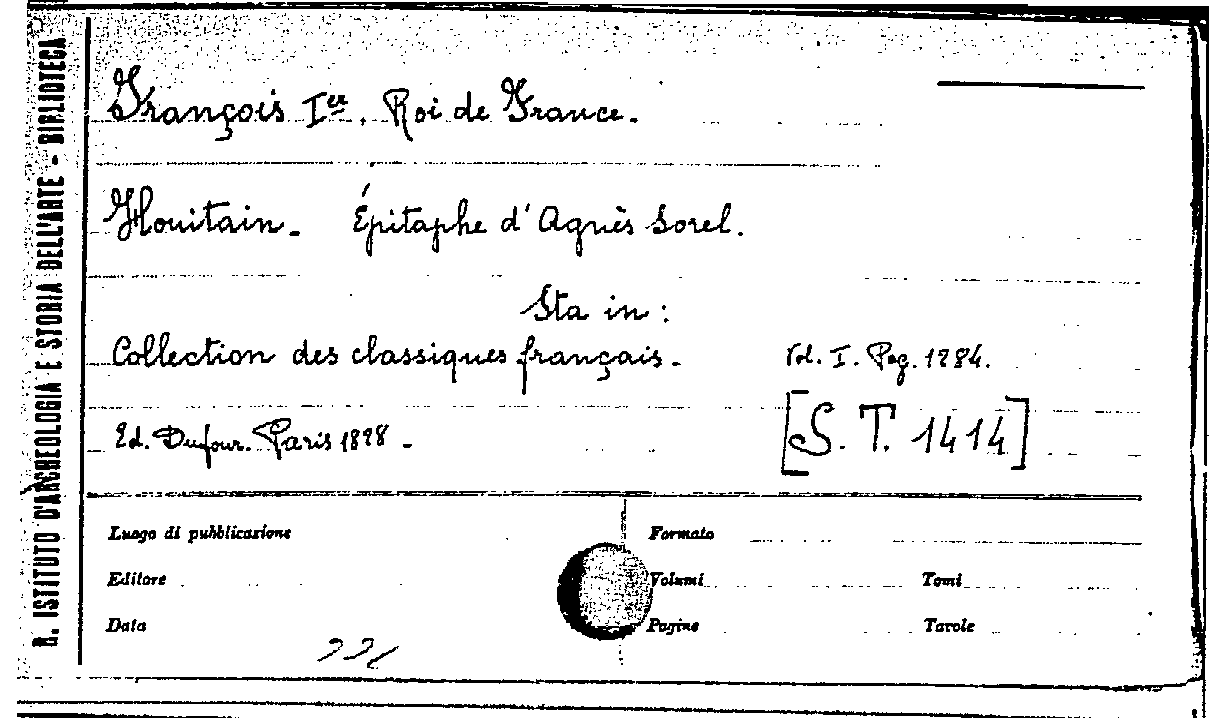 R. ISTITUTO D'ARCHEOLOGIA E STORIA DELL'ARTE - BIBLIOTECA
François Ier. Roi de France.
Huitain. Épitaphe d'Agnès Sorel.
Sta in:
Collection des classiques français. Vol. I. Pag. 1284.
Ed. Dufour. Paris 1828 -
[S. T. 1414]
Luogo di pubblicazione
Formato
Editore
Volumi
Tomi
Data
Pagine
Tavole